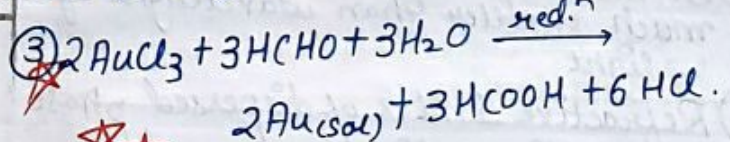 ③ 2AuCl₃ + 3HCHO + 3H₂O red.ⁿ →
2Au(sol) + 3HCOOH + 6HCl.